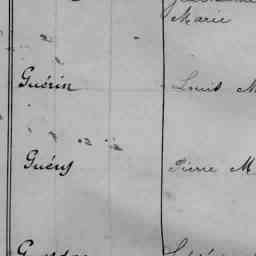 Marie
Guérin Louis M
Guéns Pierre M